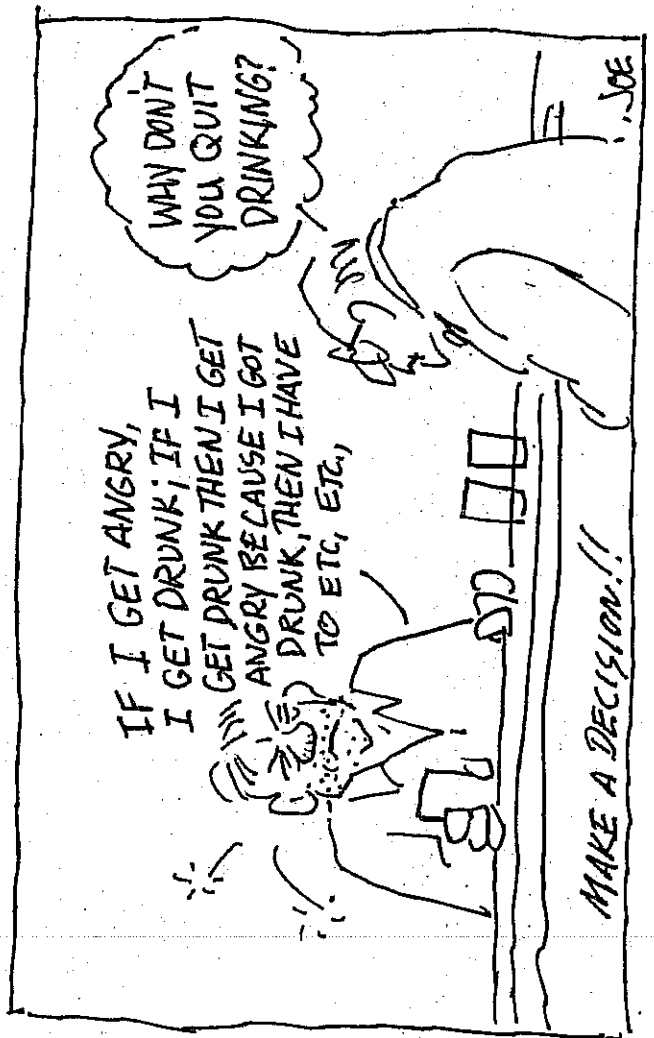 IF I GET ANGRY,
I GET DRUNK; IF I
GET DRUNK THEN I GET
ANGRY BECAUSE I GOT
DRUNK, THEN I HAVE
TO ETC, ETC.,
WHY DON'T
YOU QUIT
DRINKING?
MAKE A DECISION!!
JOE